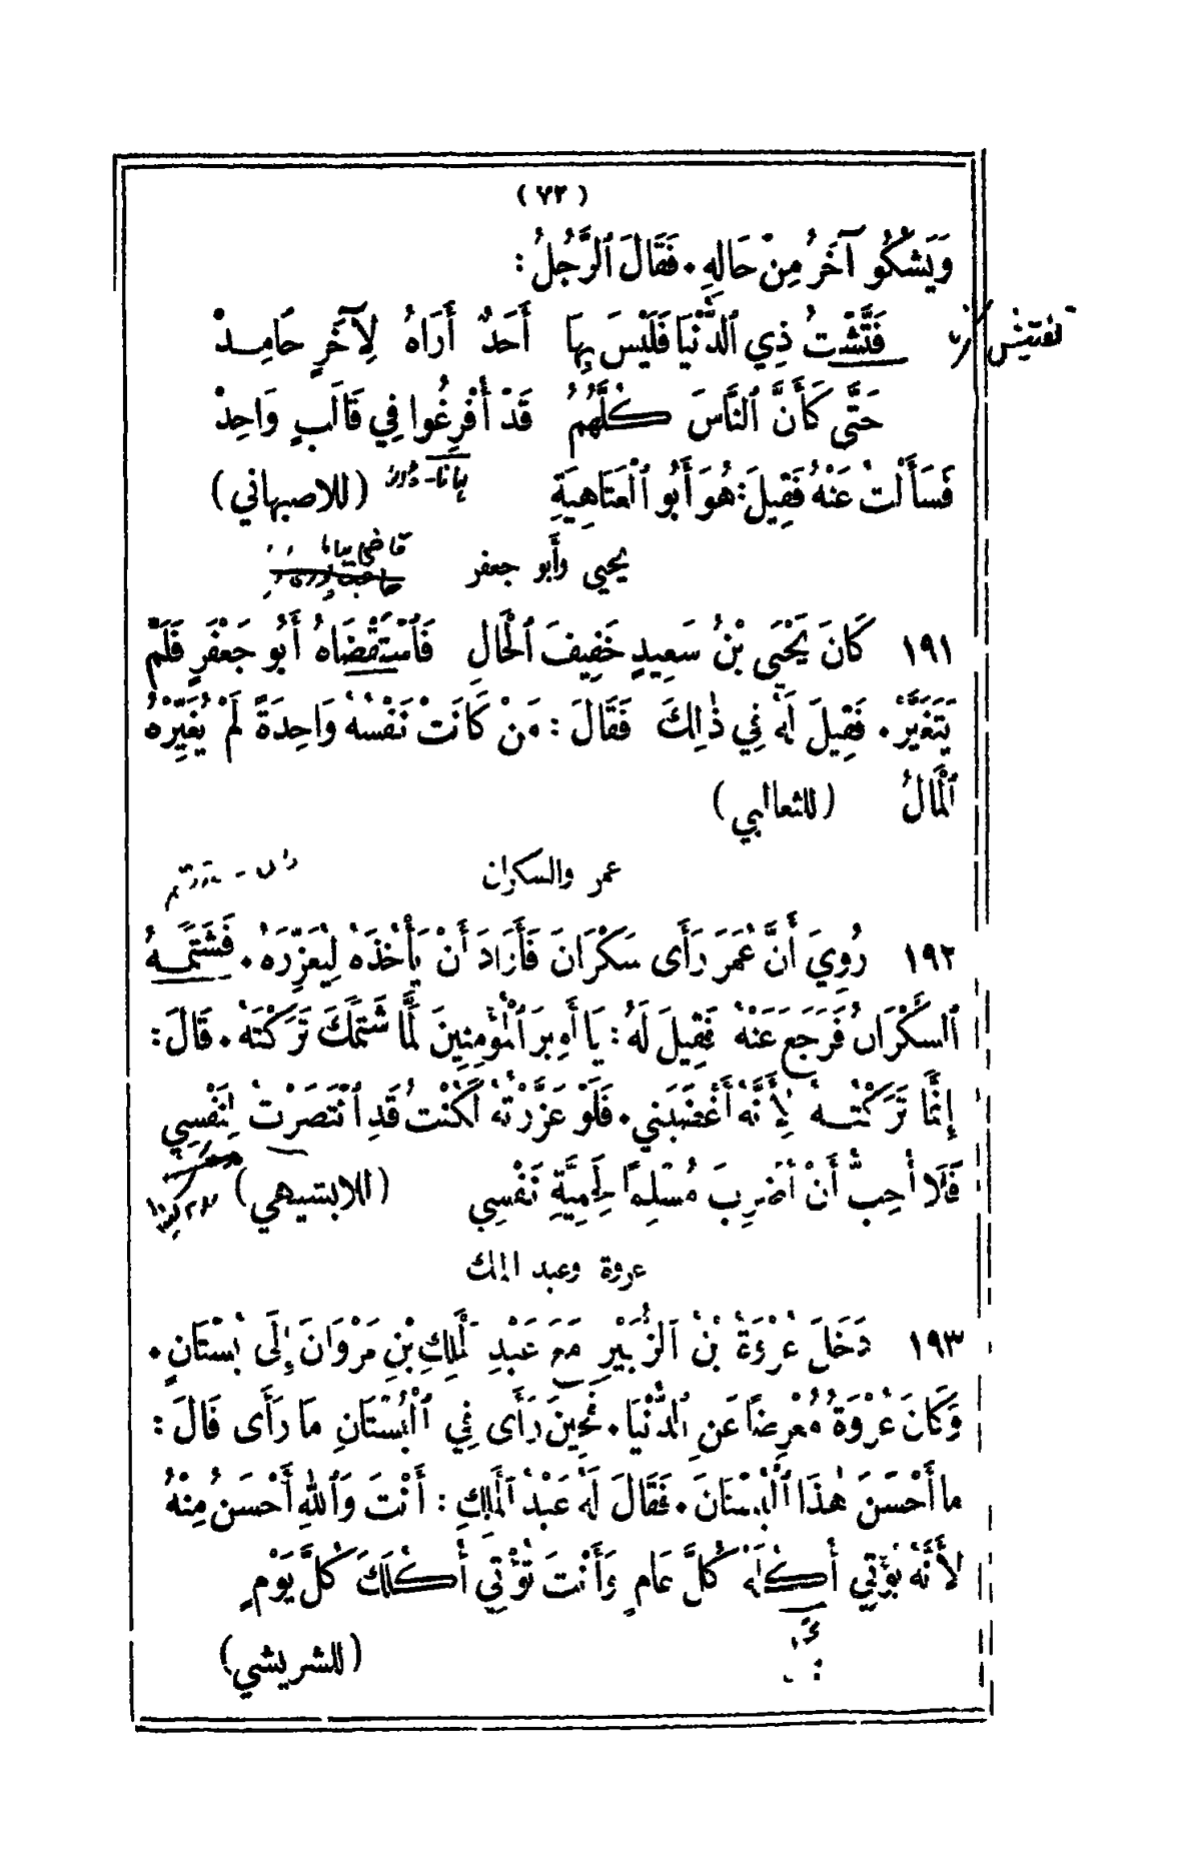 ( ٧٢ )
وَيَشْكُو آخَرُ مِنْ حَالِهِ. فَقَالَ ٱلرَّجُلُ:
فَتَّشْتُ ذِي ٱلدُّنْيَا فَلَيْسَ بِهَا أَحَدٌ أَرَاهُ لِآخَرٍ حَامِدْ
حَتَّى كَأَنَّ ٱلنَّاسَ كُلَّهُمُ قَدْ أُفْرِغُوا فِي قَالَبٍ وَاحِدْ
فَسَأَلْتُ عَنْهُ فَقِيلَ: هُوَ أَبُو ٱلْعَتَاهِيَةِ (للاصبهاني)
يحيى وأبو جعفر
١٩١ كَانَ يَحْيَى بْنُ سَعِيدٍ خَفِيفَ ٱلْحَالِ فَٱسْتَقْضَاهُ أَبُو جَعْفَرٍ فَلَمْ
يَتَغَيَّرْ. فَقِيلَ لَهُ فِي ذٰلِكَ فَقَالَ: مَنْ كَانَتْ نَفْسُهُ وَاحِدَةً لَمْ يُغَيِّرْهُ
ٱلْمَالُ (للثعالبي)
عمر والسكران
١٩٢ رُوِيَ أَنَّ عُمَرَ رَأَى سَكْرَانَ فَأَرَادَ أَنْ يَأْخُذَهُ لِيُعَزِّرَهُ. فَشَتَمَهُ
ٱلسَّكْرَانُ فَرَجَعَ عَنْهُ فَقِيلَ لَهُ: يَا أَمِيرَ ٱلْمُؤْمِنِينَ لَمَّا شَتَمَكَ تَرَكْتَهُ. قَالَ:
إِنَّمَا تَرَكْتُهُ لِأَنَّهُ أَغْضَبَنِي. فَلَوْ عَزَّرْتُهُ لَكُنْتُ قَدِ ٱنْتَصَرْتُ لِنَفْسِي
فَلَا أُحِبُّ أَنْ أَضْرِبَ مُسْلِمًا لِحَمِيَّةِ نَفْسِي (للابشيهي)
عروة وعبد الملك
١٩٣ دَخَلَ عُرْوَةُ بْنُ ٱلزُّبَيْرِ مَعَ عَبْدِ ٱلْمَلِكِ بْنِ مَرْوَانَ إِلَى بُسْتَانٍ.
وَكَانَ عُرْوَةُ مُعْرِضًا عَنِ ٱلدُّنْيَا. فَحِينَ رَأَى فِي ٱلْبُسْتَانِ مَا رَأَى قَالَ:
مَا أَحْسَنَ هٰذَا ٱلْبُسْتَانَ. فَقَالَ لَهُ عَبْدُ ٱلْمَلِكِ: أَنْتَ وَٱللهِ أَحْسَنُ مِنْهُ
لِأَنَّهُ يُؤْتِي أُكُلَهُ كُلَّ عَامٍ وَأَنْتَ تُؤْتِي أُكُلَكَ كُلَّ يَوْمٍ
(للشريشي)